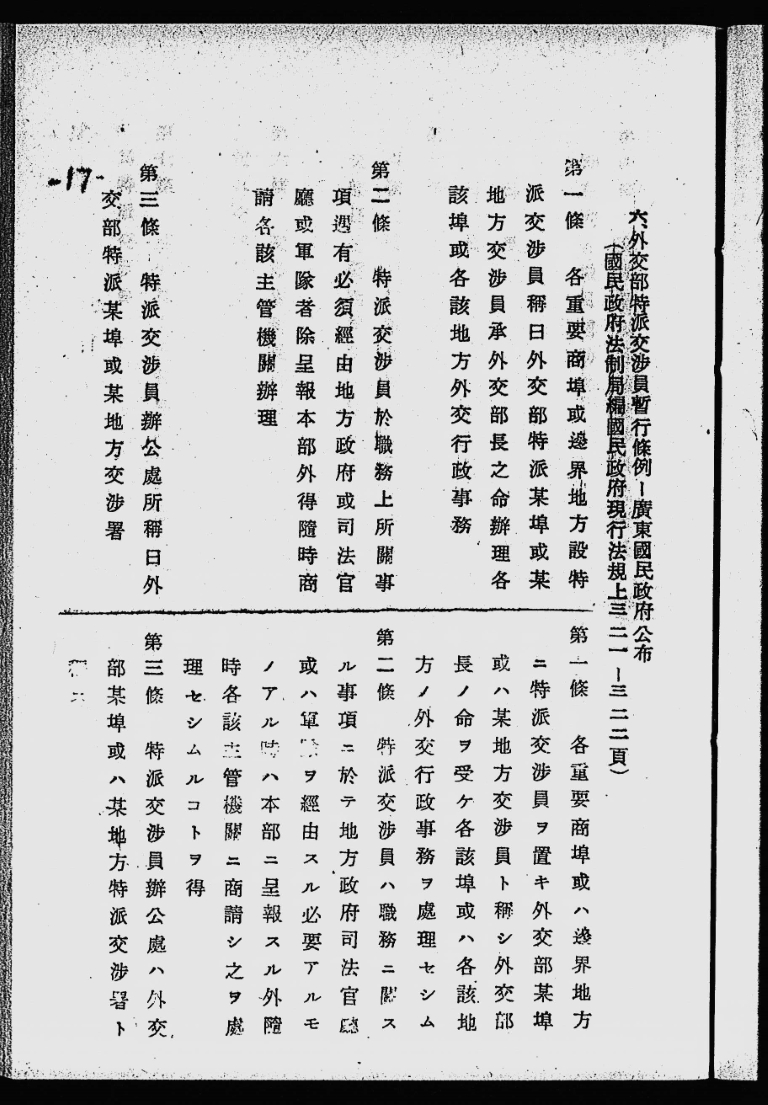 六、外交部特派交涉員暫行條例ー廣東國民政府公布
(國民政府法制局編國民政府現行法規上三二一ー三二二頁)
第一條　各重要商埠或邊界地方設特
派交涉員稱曰外交部特派某埠或某
地方交涉員承外交部長之命辦理各
該埠或各該地方外交行政事務
第二條　特派交涉員於職務上所關事
項遇有必須經由地方政府或司法官
廳或軍隊者除呈報本部外得隨時商
請各該主管機關辦理
第三條　特派交涉員辦公處所稱曰外
交部特派某埠或某地方交涉署
第一條　各重要商埠或ハ邊界地方
ニ特派交涉員ヲ置キ外交部某埠
或ハ某地方交涉員ト稱シ外交部
長ノ命ヲ受ケ各該埠或ハ各該地
方ノ外交行政事務ヲ處理セシム
第二條　特派交涉員ハ職務ニ關ス
ル事項ニ於テ地方政府司法官廳
或ハ軍隊ヲ經由スル必要アルモ
ノアル時ハ本部ニ呈報スル外隨
時各該主管機關ニ商請シ之ヲ處
理セシムルコトヲ得
第三條　特派交涉員辦公處ハ外交
部某埠或ハ某地方特派交涉署ト
稱ス
-17-